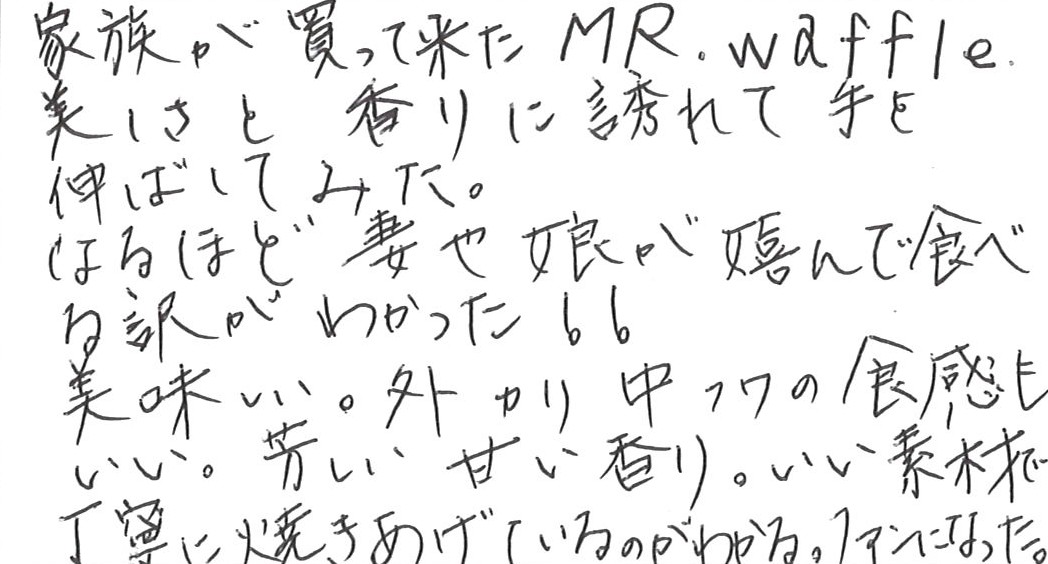 家族が買って来たMR.waffle.
美しさと 香りに誘れて 手を
伸ばしてみた。
なるほど 妻や娘が嬉んで食べ
る訳が わかった!!
美味いい。外カリ中フワの食感も
いい。芳しい甘い香り。いい素材で
丁寧に焼きあげているのがわかる。ファンになった。